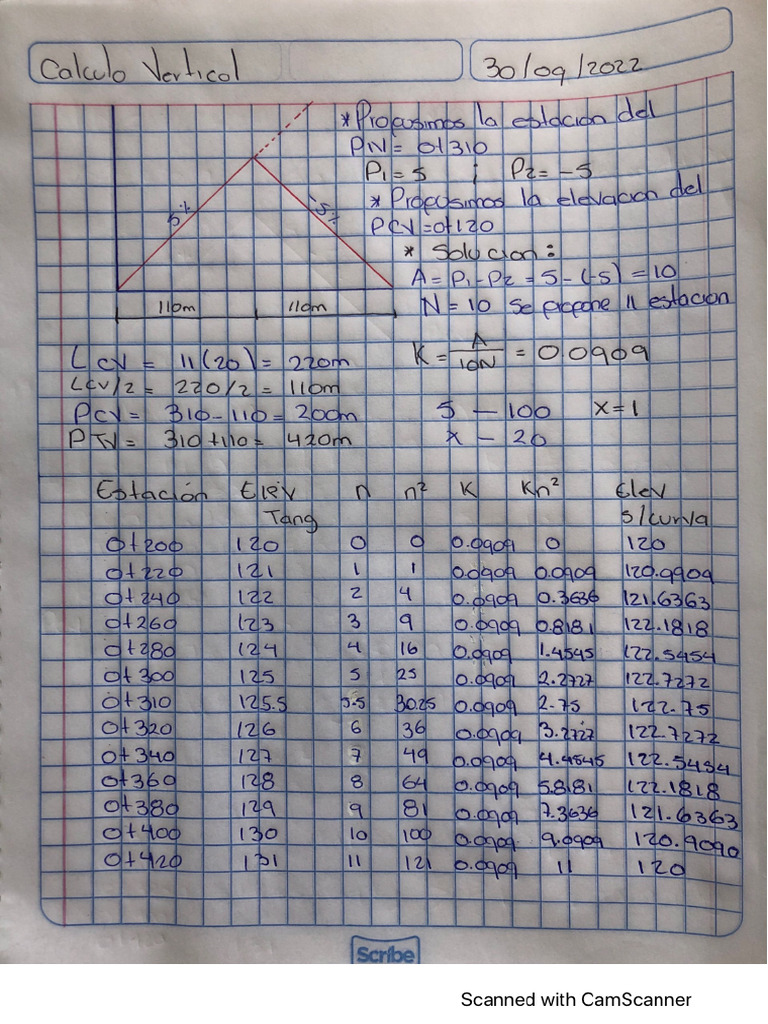 Calculo Vertical
30/09/2022
* Propusimos la estacion del
PIV = 0+310
P1 = 5 ; P2 = -5
* Propusimos la elevacion del
PCV = 0+120
* Solucion:
A = P1 - P2 = 5 - (-5) = 10
N = 10 se propone 11 estacion
5%
-5%
110m 110m
LCV = 11(20) = 220m
K = A/10N = 0.0909
LCV/2 = 220/2 = 110m
PCV = 310 - 110 = 200m
5 — 100 x = 1
PTV = 310 + 110 = 420m
x — 20
Estación Elev Tang n n² K Kn² Elev s/curva
0+200 120 0 0 0.0909 0 120
0+220 121 1 1 0.0909 0.0909 120.9909
0+240 122 2 4 0.0909 0.3636 121.6363
0+260 123 3 9 0.0909 0.8181 122.1818
0+280 124 4 16 0.0909 1.4545 122.5454
0+300 125 5 25 0.0909 2.2727 122.7272
0+310 125.5 5.5 30.25 0.0909 2.75 122.75
0+320 126 6 36 0.0909 3.2727 122.7272
0+340 127 7 49 0.0909 4.4545 122.5454
0+360 128 8 64 0.0909 5.8181 122.1818
0+380 129 9 81 0.0909 7.3636 121.6363
0+400 130 10 100 0.0909 9.0909 120.9090
0+420 131 11 121 0.0909 11 120
Scribe
Scanned with CamScanner